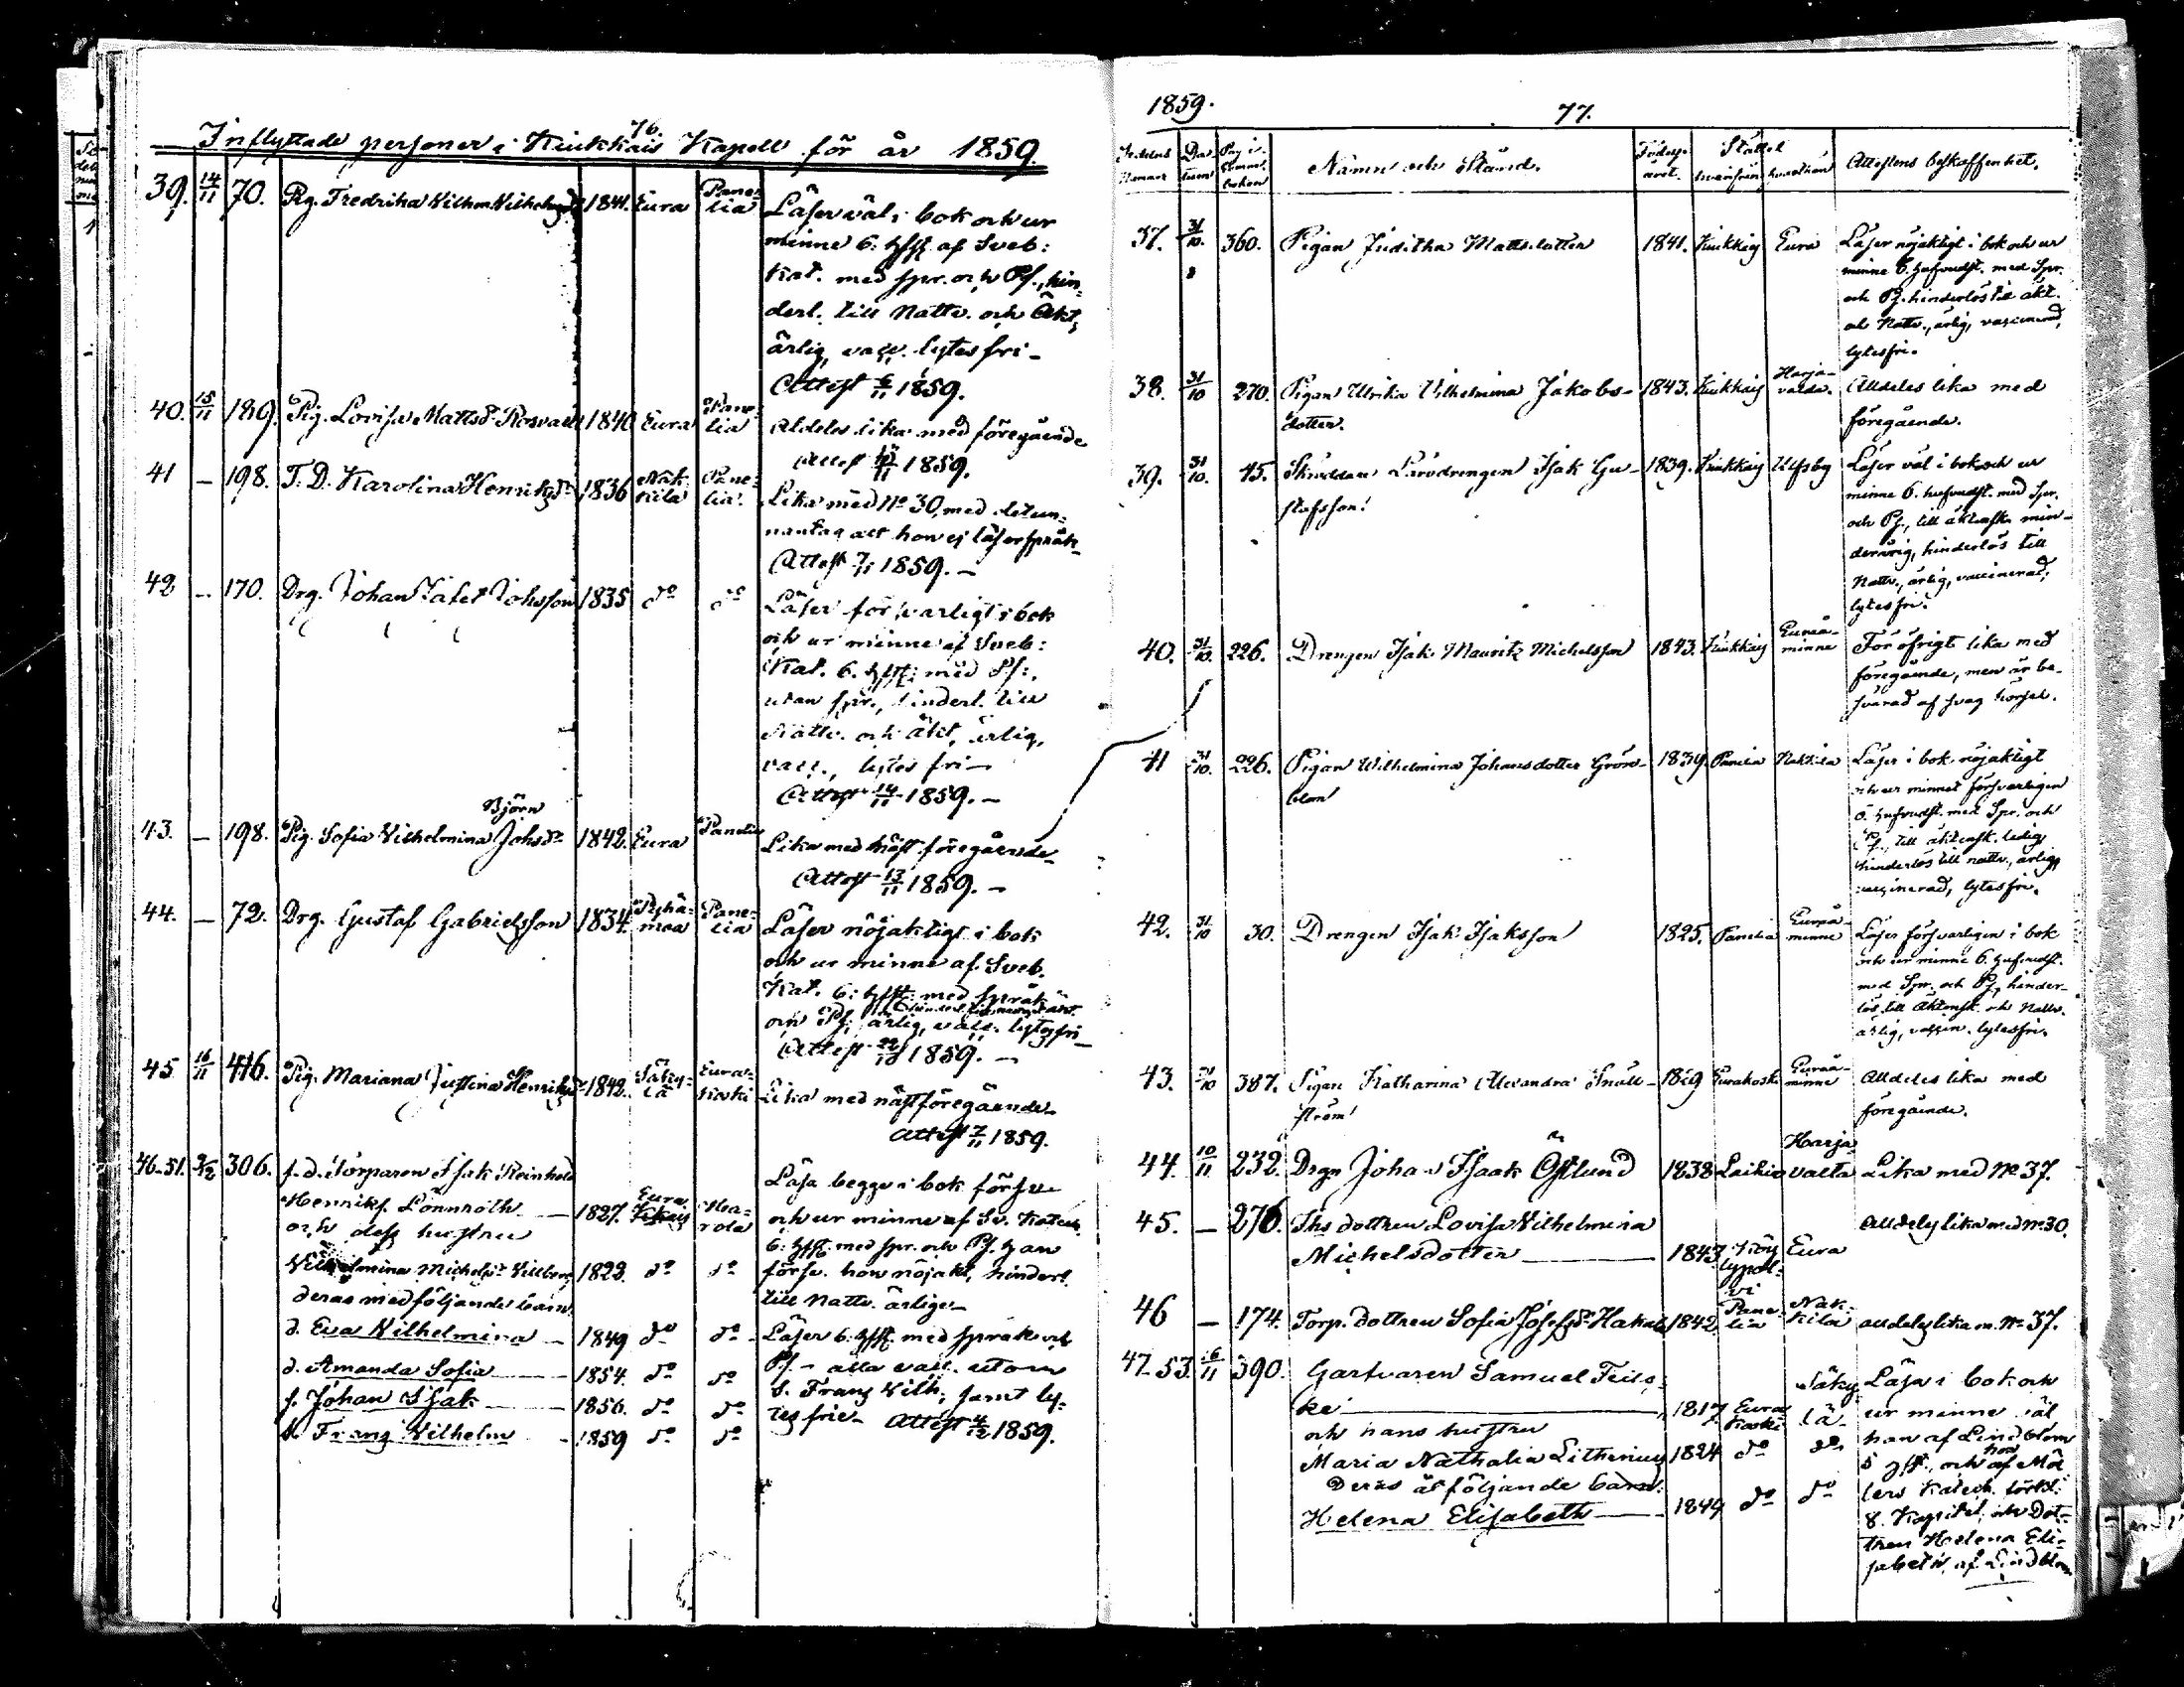 76.
Inflyttade personer i Kiukkais Kapell för år 1859
39. 14/11 70. Pig. Fredrika Vilhm. Vilhelmsdr 1841. Eura Pane-
lia
Läser väl i bok och ur
minne 6: hfst. af Sveb:
Kat. med spr. och Ps., hin-
derl. till Nattv. och Äkt,
ärlig, vacc. lytesfri -
Attest 6/11 1859.
40. 15/11 189. Pig. Lovisa Mattsdr Rosvall 1840 Eura Pane-
lia
Aldeles lika med föregående
Attest 1859.
41 - 198. T. D. Karolina Henriksdr 1836 Nak-
kila Pane-
lia.
Lika med No 30, med det un-
nantag att hon ej läser språk
Attest 7/11 1859. -
42 - 170. Drg. Johan Johsson 1835 do do
Läser försvarligt i bok
och ur minne af Sveb:
Kat. 6. hfst: med Ps:,
utan spr., hinderl. till
Nattv. och äkt, ärlig,
vacc., lytes fri -
Attest 14/11 1859. -
Björn
43. - 198. Pig. Sofia Vilhelmina Johsdr 1842. Eura Panelia
Lika med näst föregående
Attest 13/11 1859. -
44. - 72. Drg. Gustaf Gabrielsson 1834. Pyhä-
maa Pane-
lia
Läser nöjaktigt i bok
och ur minne af Sveb.
Kat. 6: hfst: med språk
och Ps; ärlig, vacc. lytesfri -
Attest 22/10 1859. -
45 16/11 416. Pig. Mariana Justina Henriksdr 1842. Säky-
lä Eura-
koski
Lika med näst föregående
Attest 7/11 1859.
46-51. 5/12 306. f. d. Torparen Isak Reinhold
Henrikss. Lönnroth 1827. Eura
Kkais Ha-
rola
och dess hustru
Vilhelmina Michelsdr Villberg 1823. do do
deras medföljande barn
d. Eva Vilhelmina - 1849 do do
d. Amanda Sofia 1854. do do
s. Johan Isak 1856. do do
s. Franz Vilhelm - 1859 do do
Läsa begge i bok försv.
och ur minne af Sv. Katech.
6: hfst: med spr. och Ps. han
försv. hon nöjakt, hinderl.
till Nattv. ärliga -
Läser 6: hfst. med språk och
Ps. - alla vacc. utom
s. Franz Vilh., samt ly-
tesfria - Attest 4/12 1859.
1859.
77.
Sedelns
Nummer Da-
tum Pag i
Comm.
boken Namn och Stånd. Födelse
året. Stället
hvarifrån hvarthän Attestens beskaffenhet.
37. 31/10. 360. Pigan Juditha Mattsdotter 1841. Kiukkais Eura
Läser nöjaktigt i bok och ur
minne 6. hufvudst. med Spr.
och Ps. hinderlös till äkt.
och Nattv., ärlig, vaccinerad,
lytesfri.
38. 31/10 270. Pigan Ulrika Vilhelmina Jakobs-
dotter. 1843. Kiukkais Harja-
valda.
Alldeles lika med
föregående.
39. 31/10. 45. Skräddare Lärodrengen Isak Gu-
stafsson. 1839. Kiukkais Ulfsby
Läser väl i bok och ur
minne 6. hufvudst. med Spr.
och Ps., till äktensk. min-
derårig, hinderlös till
Nattv., ärlig, vaccinerad,
lytesfri.
40. 31/10. 226. Drengen Isak Mauritz Michelsson 1843. Kiukkais Euraå-
minne
För öfrigt lika med
föregående, men är be-
svärad af svag hörsel.
41 31/10. 226. Pigan Wilhelmina Johansdotter Grön-
blom 1839. Panelia Nakkila
Läser i bok nöjaktigt
och ur minnet försvarligen
6. hufvudst. med Spr. och
Ps., till äktensk. ledig,
hinderlös till nattv., ärlig,
vaccinerad, lytesfri.
42. 31/10 30. Drengen Isak Isaksson 1825. Panelia Euraå-
minne
Läser försvarligen i bok
och ur minne 6. hufvudst.
med Spr. och Ps, hinder-
lös till Äktensk. och Nattv.
ärlig, vaccin. lytesfri.
43. 31/10 387. Pigan Katharina Alexandra Snäll-
ström Eurakoski Euraå-
minne
Alldeles lika med
föregående.
44. 10/11 232. Drgn Johan Isaak Östlund 1838 Laihia Harja
valta Lika med No 37.
45. - 276. Ths dottren Lovisa Vilhelmina
Michelsdotter 1843. Eura
Alldeles lika med No 30.
46 - 174. Torp. dottren Sofia Josefsdr Hakala 1842. Pane
lia Nak-
kila alldeles lika m. No 37.
47-53. 16/11 390. Garfvaren Samuel Teils-
ke 1817 Eura
koski Säky-
lä
och hans hustru
Maria Nathalia Lithenius 1824 do do
Deras åtföljande barn:
Helena Elisabeth 1849 do do
Läsa i bok och
ur minne väl
han af Lindblom
5 hfst., och hon af Möl
lers Katech. förkl.
8. Kapitel, och Dot-
tren Helena Eli-
sabeth, af Lindblom